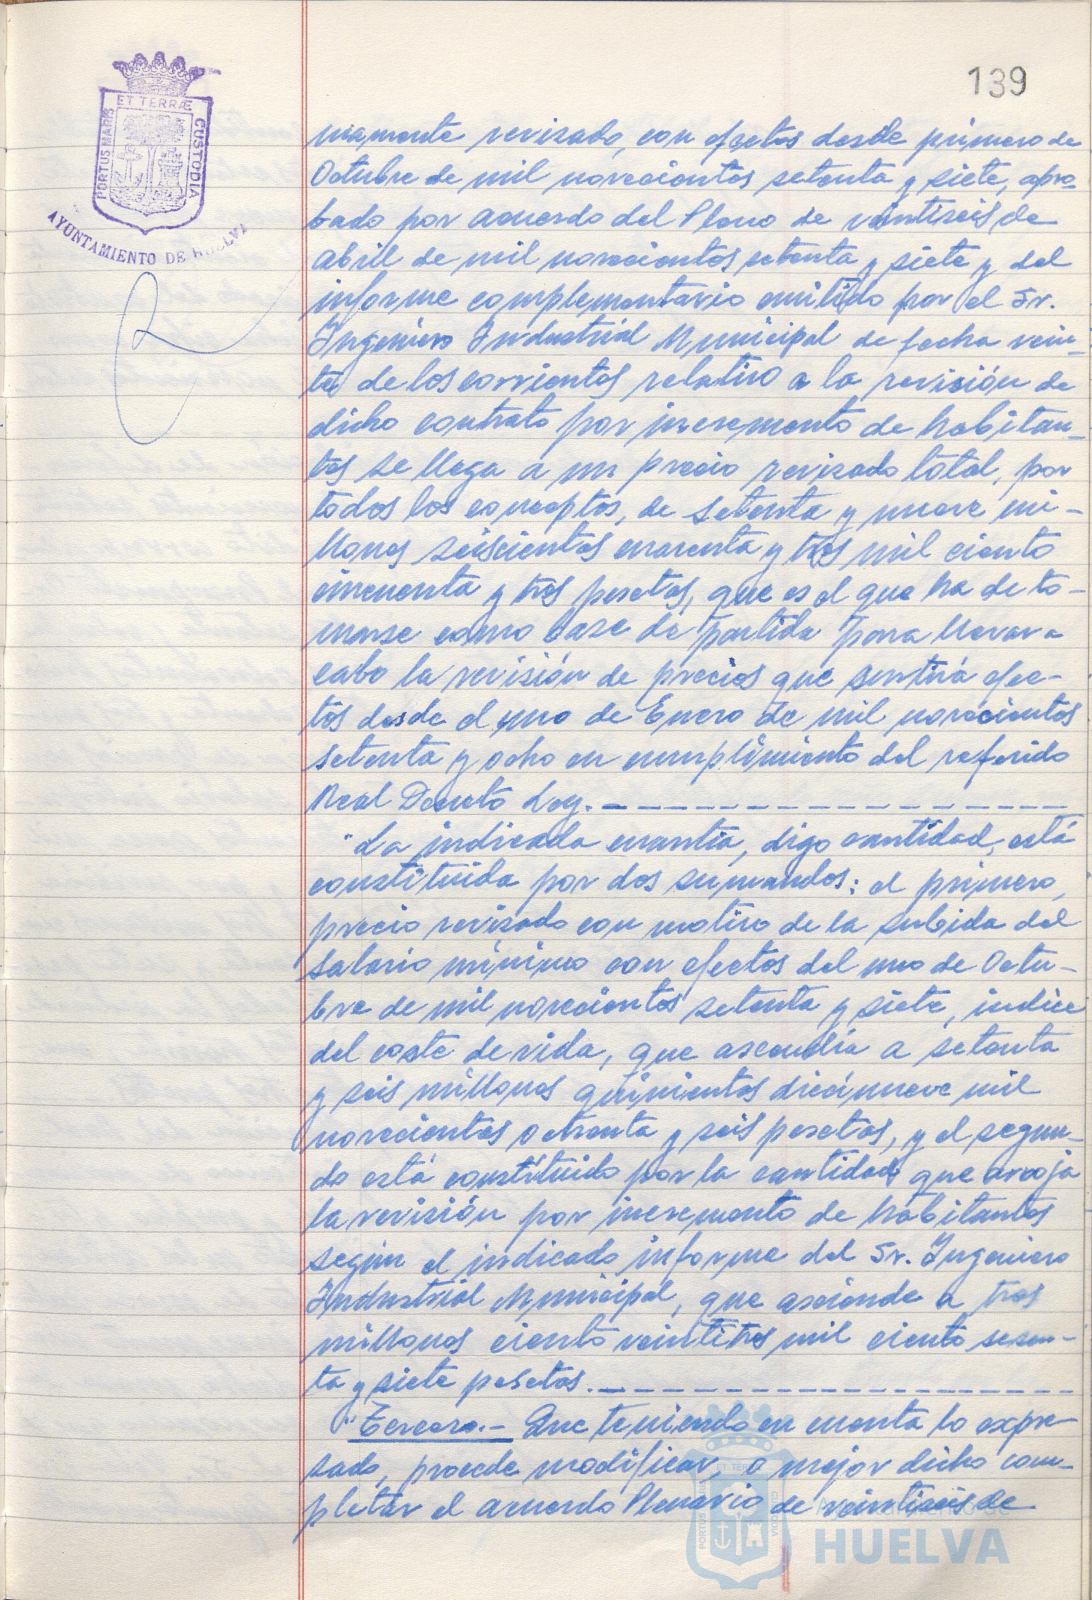 139
ET TERRÆ
PORTUS MARIS
CUSTODIA
AYUNTAMIENTO DE HUELVA
mamente revisado, con efectos desde primero de
Octubre de mil novecientos setenta y siete, apro-
bado por acuerdo del Pleno de veintiseis de
abril de mil novecientos setenta y siete y del
informe complementario emitido por el Sr.
Ingeniero Industrial Municipal de fecha vein-
te de los corrientes relativo a la revisión de
dicho contrato por incremento de habitan-
tes se llega a un precio revisado total, por
todos los conceptos, de setenta y nueve mi-
llones seiscientos cuarenta y tres mil ciento
cincuenta y tres pesetas, que es el que ha de to-
marse como base de partida para llevar a
cabo la revisión de precios que surtirá efec-
tos desde el uno de Enero de mil novecientos
setenta y ocho en cumplimiento del referido
Real Decreto Ley.
"La indicada cuantía, digo cantidad, está
constituida por dos sumandos: el primero,
precio revisado con motivo de la subida del
salario mínimo con efectos del uno de Octu-
bre de mil novecientos setenta y siete, indice
del coste de vida, que ascendía a setenta
y seis millones quinientos diecinueve mil
novecientas ochenta y seis pesetas, y el segun-
do está constituido por la cantidad que arroja
la revisión por incremento de habitantes
según el indicado informe del Sr. Ingeniero
Industrial Municipal, que asciende a tres
millones ciento veintitres mil ciento sesen-
ta y siete pesetas.
"Tercero.- Que teniendo en cuenta lo expre-
sado, procede modificar, o mejor dicho com-
pletar el acuerdo Plenario de veintiseis de
Ayuntamiento de
HUELVA